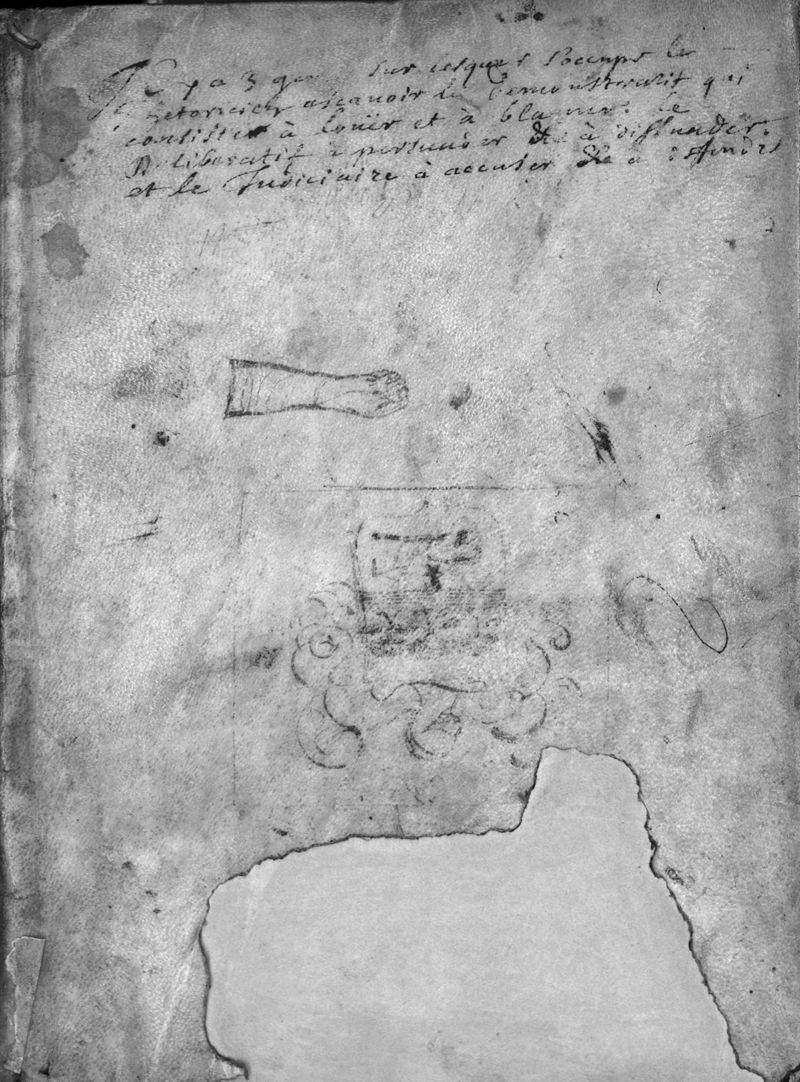 Il y a 3 sur lesquels s'occupe le
Rhetoricien ascavoir le Demonstratif qui
consiste à louër et à blamer. le
Deliberatif a persuader & à dissuader.
et le Judiciaire à accuser & a deffendre